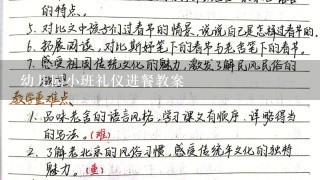 的特点。
5. 对比文中孩子们过春节的情景,说说自己是怎样过春节的。
6. 拓展阅读,对比斯妤笔下的春节与老舍笔下的春节。
7. 感受祖国传统文化的魅力,激发了解民风民俗的
幼儿园小班礼仪进餐教案
教学重难点
1. 品味老舍的语言风格,学习课文有顺序、详略得当
的写法。(难)
2. 了解老北京的风俗习惯,感受传统年文化的独特
魅力。(重)